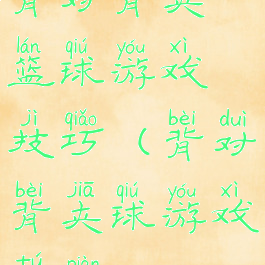 背对背夹
lán qiú yóu xì
篮球游戏
jì qiǎo bèi duì
技巧（背对
bèi jiā qiú yóu xì
背夹球游戏
tú piàn